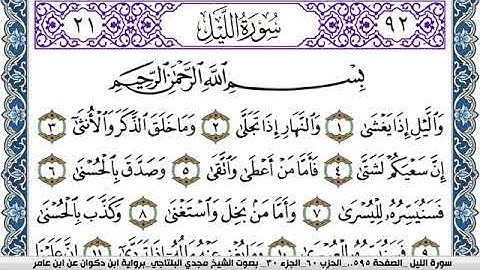 ٩٢ سُورَةُ اللَّيْلِ ٢١
بِسْمِ اللَّهِ الرَّحْمَٰنِ الرَّحِيمِ
وَاللَّيْلِ إِذَا يَغْشَىٰ ١ وَالنَّهَارِ إِذَا تَجَلَّىٰ ٢ وَمَا خَلَقَ الذَّكَرَ وَالْأُنثَىٰ ٣
إِنَّ سَعْيَكُمْ لَشَتَّىٰ ٤ فَأَمَّا مَنْ أَعْطَىٰ وَاتَّقَىٰ ٥ وَصَدَّقَ بِالْحُسْنَىٰ ٦
فَسَنُيَسِّرُهُ لِلْيُسْرَىٰ ٧ وَأَمَّا مَن بَخِلَ وَاسْتَغْنَىٰ ٨ وَكَذَّبَ بِالْحُسْنَىٰ
٩ فَسَنُيَسِّرُهُ لِلْعُسْرَىٰ ١٠ وَمَا يُغْنِي عَنْهُ مَالُهُ إِذَا تَرَدَّىٰ ١١ إِنَّ عَلَيْنَا
سورة الليل _الصفحة ٥٩٥_ الحزب ٦٠_الجزء ٣٠_ بصوت الشيخ مجدي البلتاجي_برواية ابن ذكوان عن ابن عامر